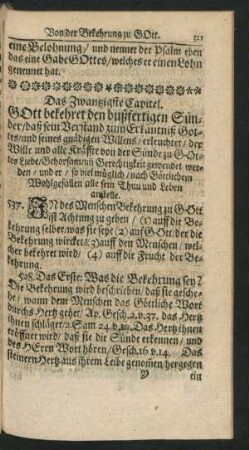 Von der Bekehrung zu GOtt. 321
eine Belohnung / und nennet der Psalm eben
das eine Gabe GOttes / welches er einen Lohn
genennet hat.
Das Zwantzigste Capitel.
GOtt bekehret den bußfertigen Sün-
der / daß sein Verstand zum Erkäntniß Got-
tes / und seines gnädigen Willens / erleuchtet / der
Wille und alle Kräffte von der Sünde zu GOt-
tes Liebe / Gehorsam / uñ Gerechtigkeit gewendet wer-
den / und er / so viel müglich / nach Göttlichem
Wohlgefallen alle sein Thun und Leben
anstelle.
527. IN des Menschen Bekehrung zu GOtt
ist Achtung zu geben / (1) auff die Be-
kehrung selber, was sie sey: (2) auf GOtt, der die
Bekehrung wircket: (3) auff den Menschen / wel-
cher bekehret wird / (4) auff die Frucht der Be-
kehrung.
528. Das Erste: Was die Bekehrung sey?
Die Bekehrung wird beschrieben / daß sie gesche-
he / wann dem Menschen das Göttliche Wort
durchs Hertz gehet / Ap. Gesch. 2. v. 37. das Hertz
ihnen schläget / 2 Sam 24. v. 10. Das Hertz ihnen
eröffnet wird / daß sie die Sünde erkennen / und
des HErrn Wort hören / Gesch. 16 v. 14. Das
steinern Hertz aus ihrem Leibe genom̃en / hergegen
ein